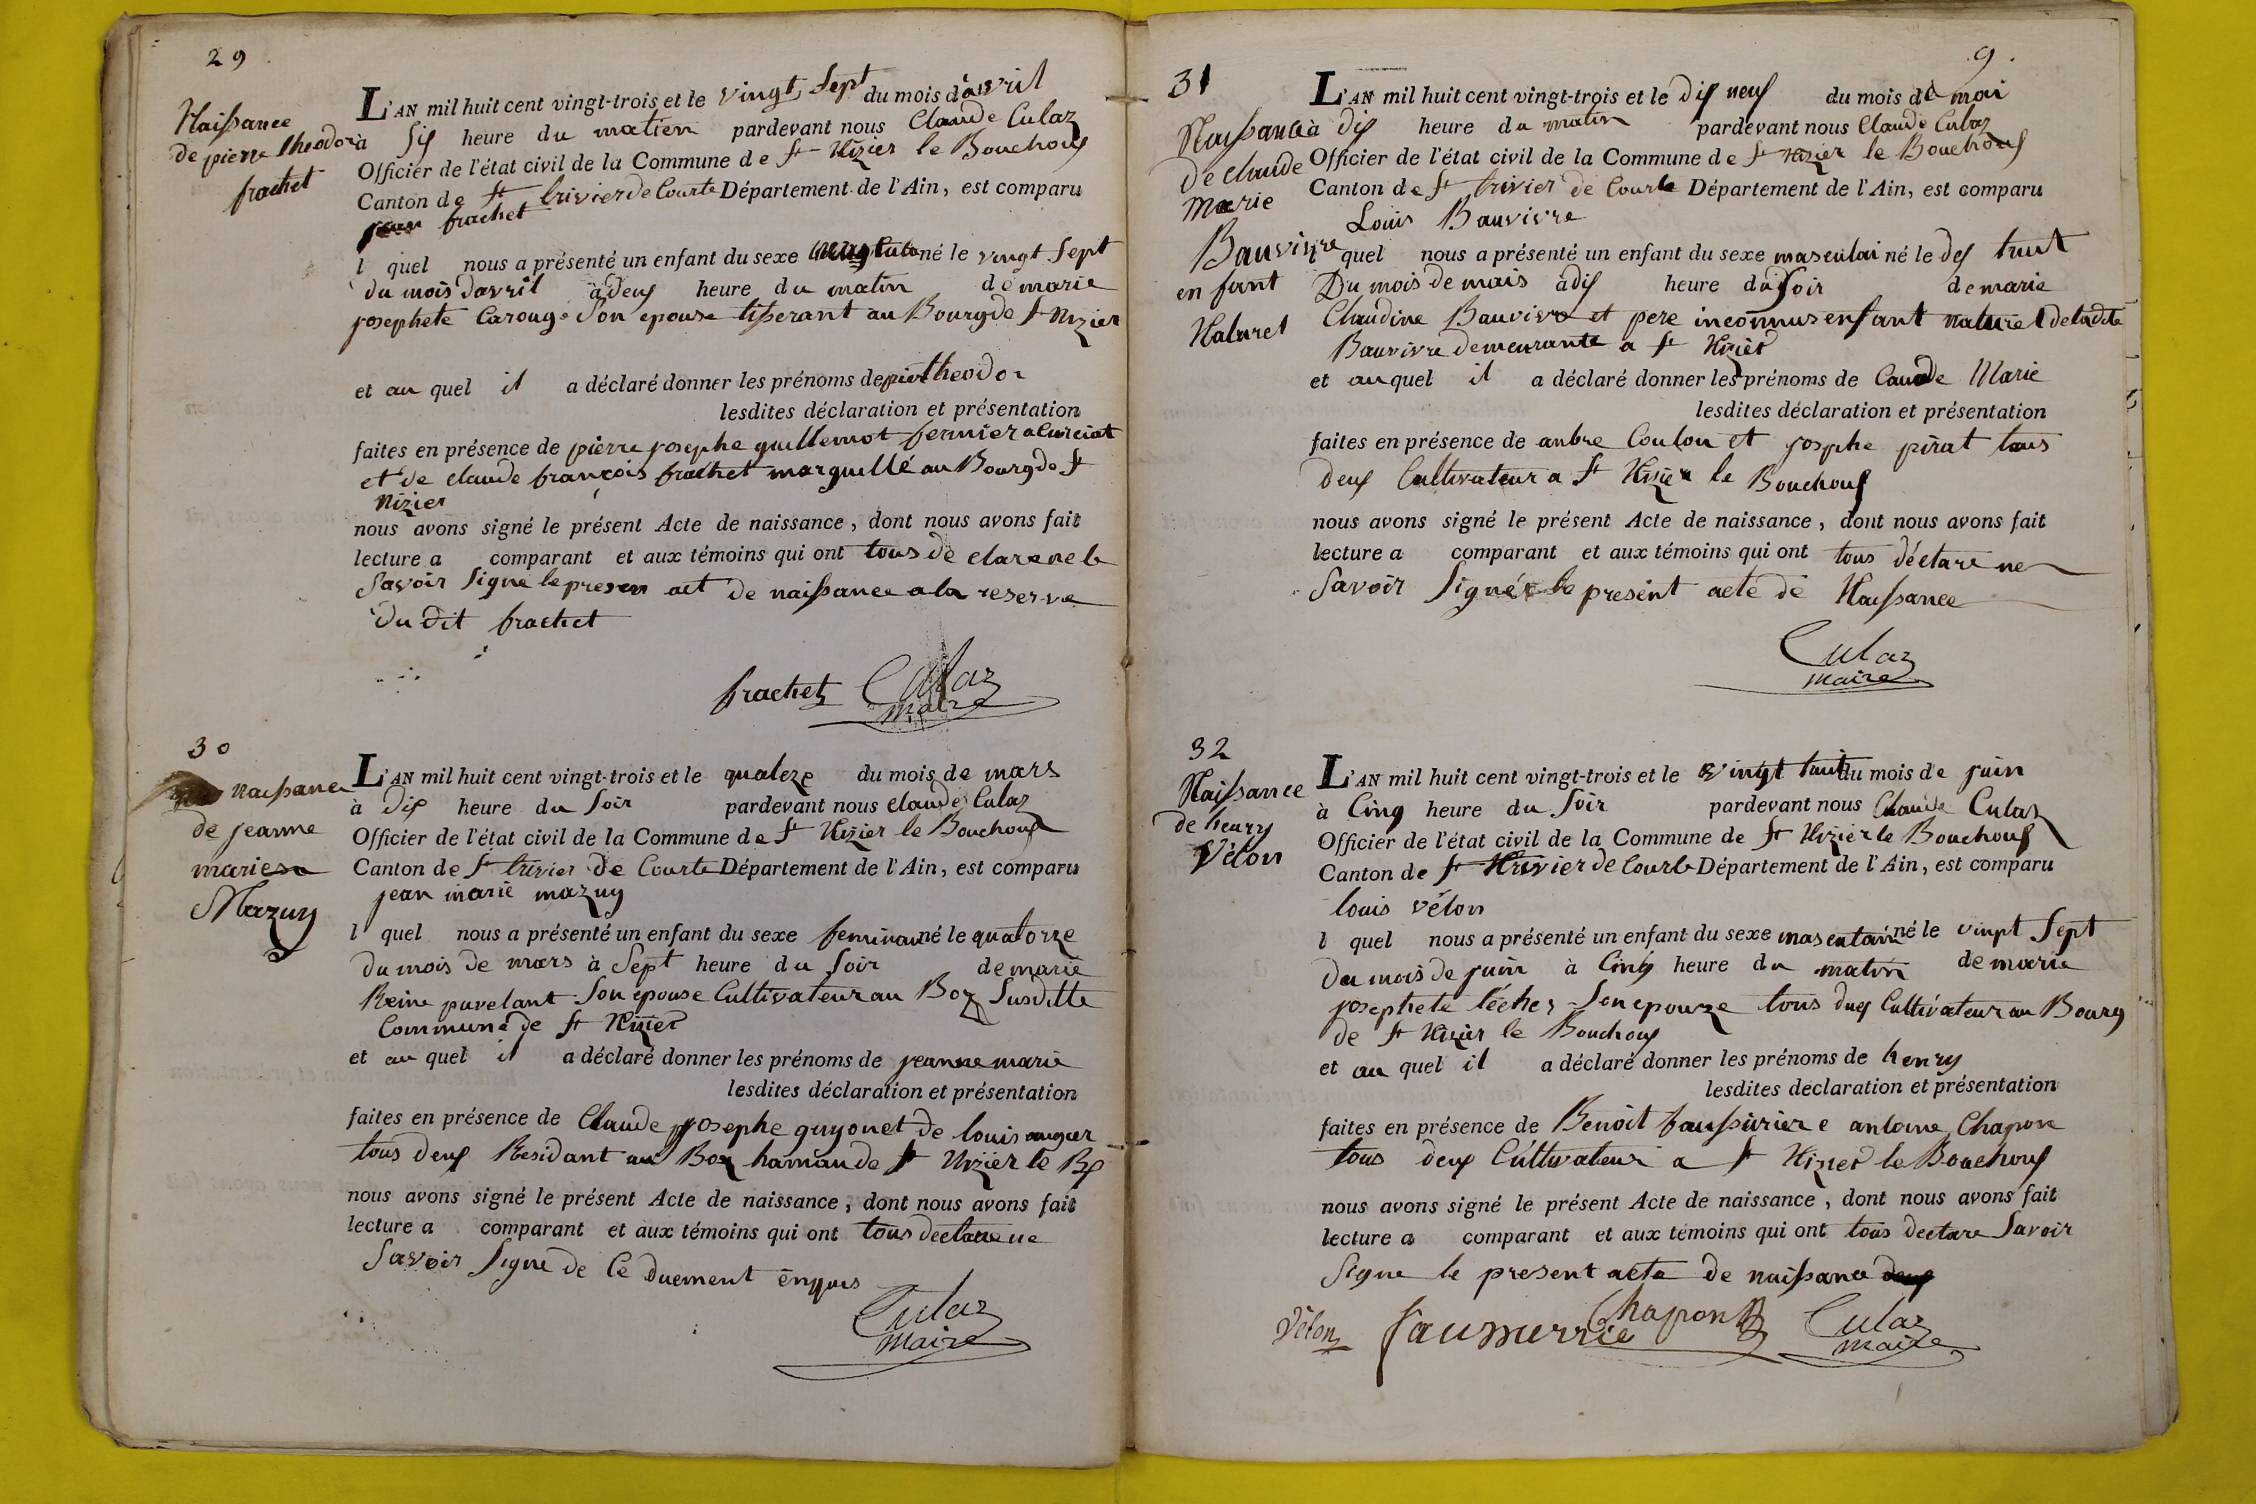 29
Naissance
de pierre theodor
frachet
L'AN mil huit cent vingt-trois et le vingt sept du mois d'avril
à Sis heure du matien pardevant nous Claude Culaz
Officier de l'état civil de la Commune de St Nizier le Bouchous
Canton de St trivier de Courte Département de l'Ain, est comparu
jean frachet
l quel nous a présenté un enfant du sexe né le vingt Sept
du mois davril à deus heure du matin de marie
josephete Carouge Son epouse tiserant au Bourg de St Nizier
et au quel il a déclaré donner les prénoms de pier theodor
lesdites déclaration et présentation
faites en présence de pierre josephe guillemot fermier a Curciat
et de claude françois frachet marguillé au Bourg de St
Nizier
nous avons signé le présent Acte de naissance, dont nous avons fait
lecture a comparant et aux témoins qui ont tous de clare ne le
Savoir Signe le presen act de naissance a la reserve
du dit frachet
frachet Culaz
maire
30
naissance
de jeanne
marie
Mazuy
L'AN mil huit cent vingt-trois et le quateze du mois de mars
à Dis heure du Soir pardevant nous claude Culaz
Officier de l'état civil de la Commune de St Nizier le Bouchous
Canton de St trivier de Courte Département de l'Ain, est comparu
jean marie mazuy
l quel nous a présenté un enfant du sexe feminain né le quatorze
du mois de mars à Sept heure du Soir de marie
Reine puvelant Son epouse Cultivateur au Boz Susditte
Commune de St Nizier
et au quel il a déclaré donner les prénoms de jeanne marie
lesdites déclaration et présentation
faites en présence de Claude josephe guyonet de louis auger
tous deus Residant au Boz hamau de St Nizier le Bs
nous avons signé le présent Acte de naissance, dont nous avons fait
lecture a comparant et aux témoins qui ont tous declare ne
Savoir Signe de Ce duement enquis
Culaz
maire
9.
31
Naissance
de claude
Marie
Bauvivre
enfant
Naturel
L'AN mil huit cent vingt-trois et le dis neuf du mois de mai
à dis heure du matin pardevant nous Claude Culaz
Officier de l'état civil de la Commune de St Nizier le Bouchous
Canton de St trivier de Courte Département de l'Ain, est comparu
Louis Bauvivre
quel nous a présenté un enfant du sexe masculai né le des huit
Du mois de mais à dis heure du Soir de marie
Claudine Bauvivre et pere inconnus enfant naturel de ladite
Bauvivre demeurante a St Nizier
et au quel il a déclaré donner les prénoms de Caude Marie
lesdites déclaration et présentation
faites en présence de anbre Coulon et josphe pirat tous
deus Cultivateur a St Nizier le Bouchous
nous avons signé le présent Acte de naissance, dont nous avons fait
lecture a comparant et aux témoins qui ont tous déclare ne
Savoir Signér le present acte de Naissance
Culaz
maire
32
Naissance
de henry
Vélon
L'AN mil huit cent vingt-trois et le vingt huit du mois de juin
à Cinq heure du Soir pardevant nous Claude Culaz
Officier de l'état civil de la Commune de St Nizier le Bouchous
Canton de St trivier de Courte Département de l'Ain, est comparu
louis vélon
l quel nous a présenté un enfant du sexe masculain né le vingt Sept
du mois de juin à Cinq heure du matin de marie
josephete Son epouze tous dues Cultivateur au Bourg
de St Nizier le Bouchous
et au quel il a déclaré donner les prénoms de henry
lesdites déclaration et présentation
faites en présence de Benoit faussurier e antoine Chapon
tous deus Cultivateur a St Nizier le Bouchous
nous avons signé le présent Acte de naissance, dont nous avons fait
lecture a comparant et aux témoins qui ont tous declare Savoir
Signe le present acte de naissance
Vélon Chapon Culaz
maire